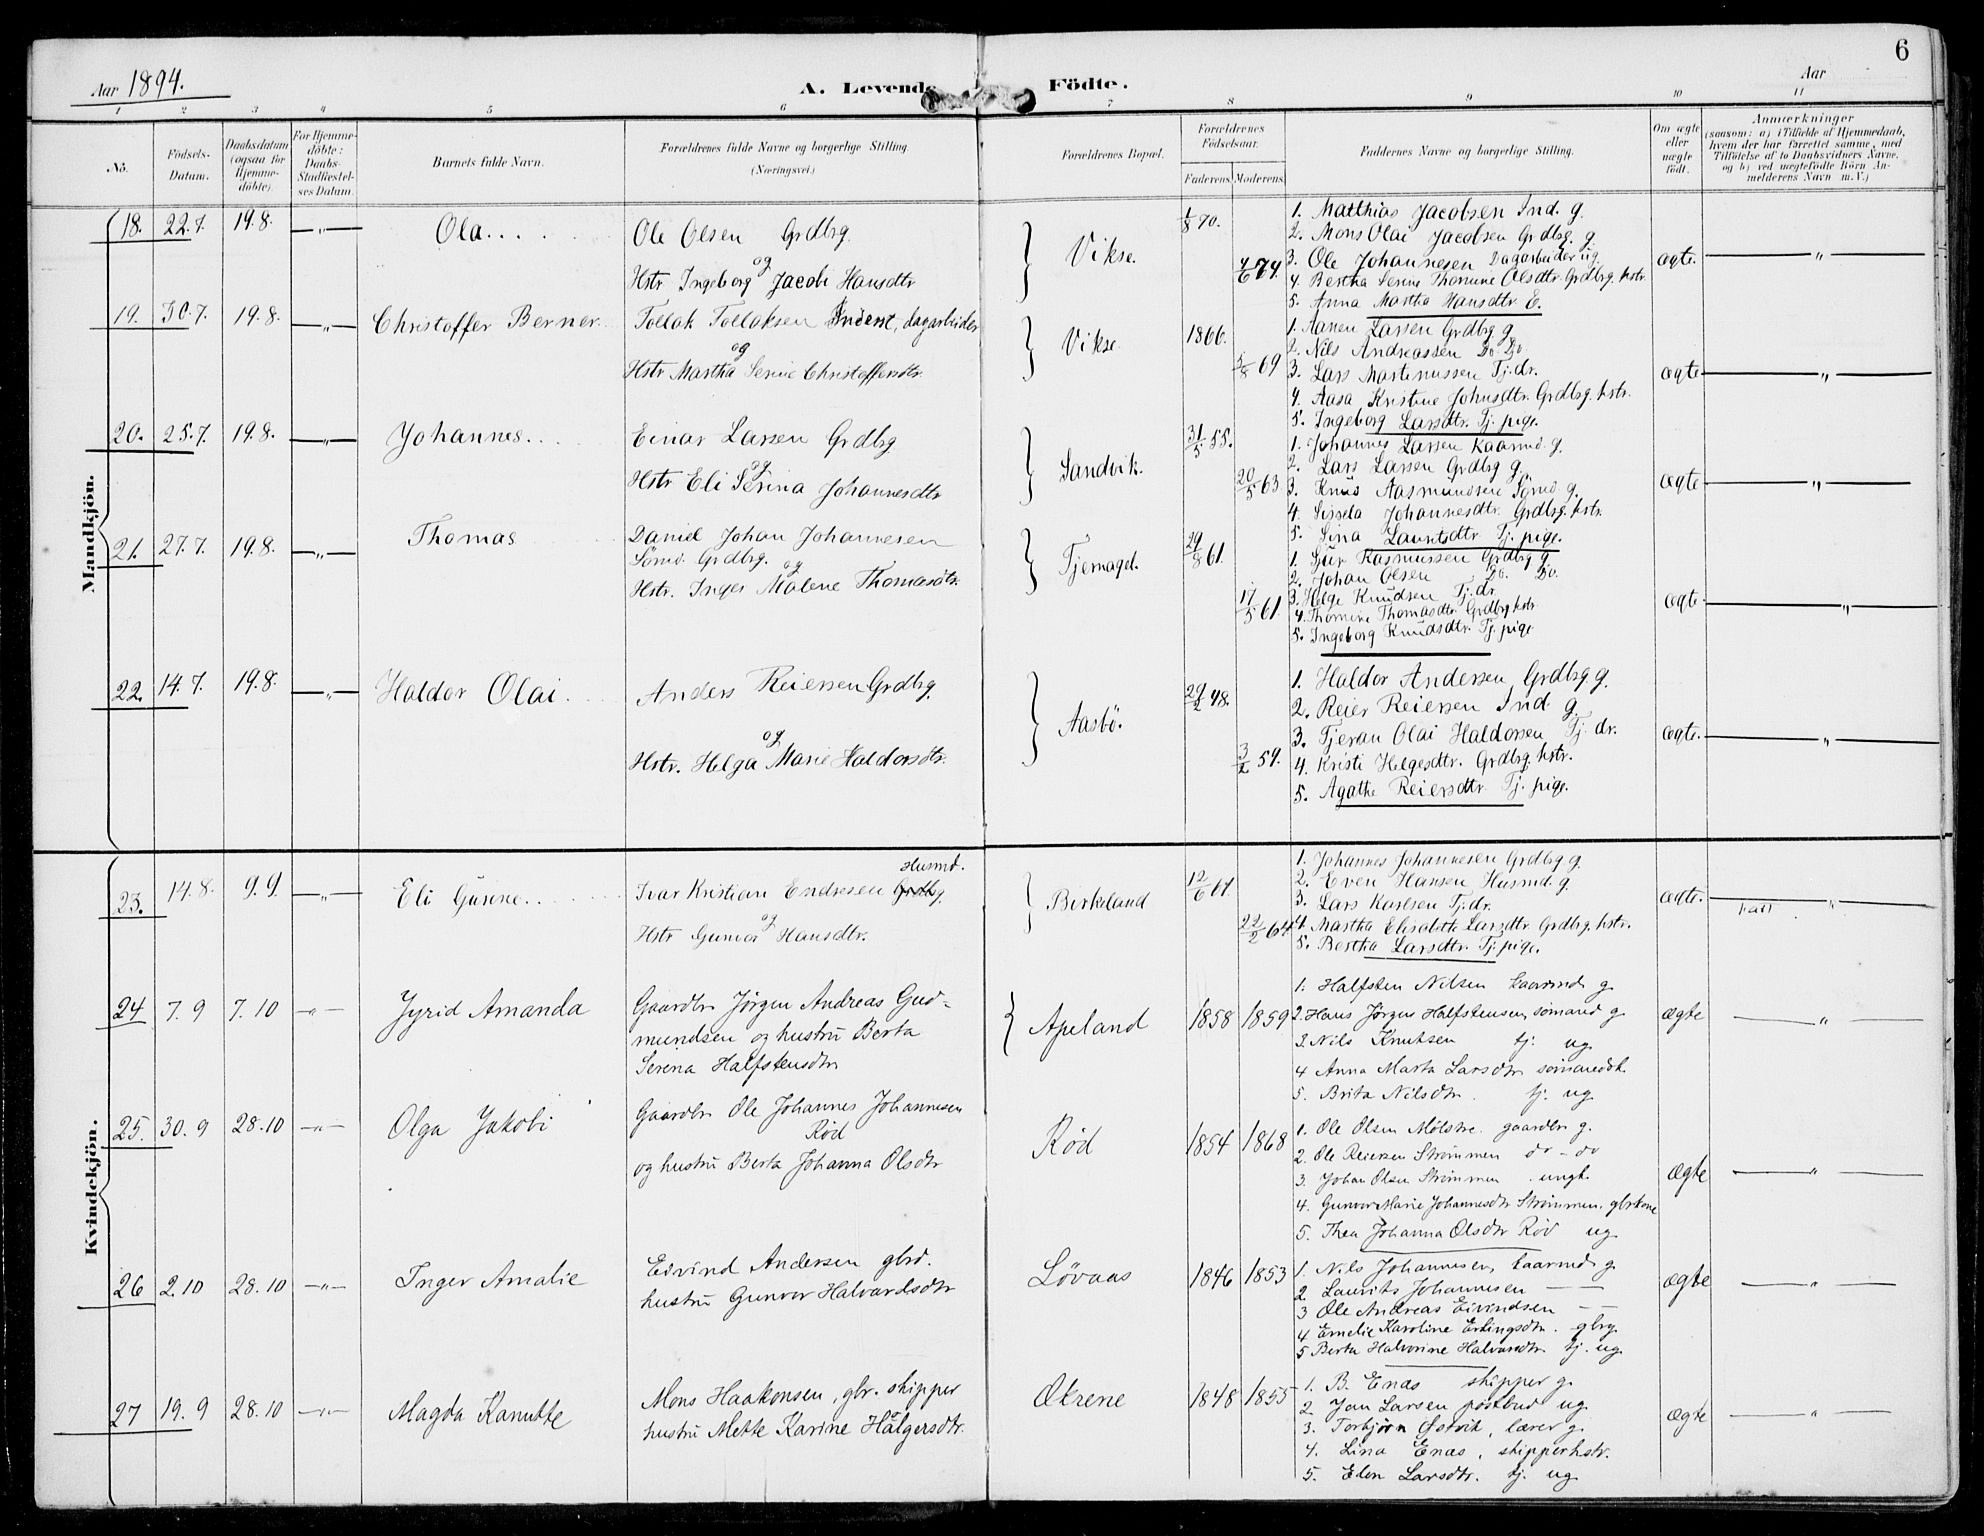 6
Aar 1894.
A. Levende Födte.
Aar
1 2 3 4 5 6 7 8 9 10 11
No.
Födsels-Datum.
Daabsdatum (ogsaa for Hjemme-döbte).
For Hjemme-döbte: Daabs-Stadfæstel-ses Datum.
Barnets fulde Navn.
Forældrenes fulde Navne og borgerlige Stilling.
(Næringsvei.)
Forældrenes Bopæl.
Forældrenes Födselsaar.
Faderens. Moderens.
Faddernes Navne og borgerlige Stilling.
Om ægte eller uægte födt.
Anmærkninger
(saasom: a) i Tilfælde af Hjemmedaab,
hvem der har forrettet samme, med
Tilföielse af to Daabsvidners Navne,
og b) ved uægtefödte Börn An-
melderens Navn m. V.)
Mandkjön.
18. 22.7. 19.8. —„— Ola....
Ole Olsen Grdbrg.
og
Hstr Ingeborg Jacobi Hansdtr
Vikse. 1/8 70. 4/6 74.
1. Matthias Jacobsen Ind. g.
2. Mons Olai Jacobsen Grdbrg. g.
3. Ole Johannesen Dagarbeider ug.
4. Bertha Serine Thomine Olsdtr. Grdbrg. hstr.
5. Anna Martha Hansdtr E.
ægte. —„—
19. 30.7. 19.8. —„— Christoffer Berner.
Tollak Tollaksen Inderst, dagarbeider
og
Hstr Martha Serine Christoffersdtr.
Vikse. 1866. 5/8 69
1. Aanen Larsen Grdbrg g
2. Nils Andreassen Do Do.
3. Lars Martinussen Tj. dr.
4. Aasa Kristine Johnsdtr. Grdbrg. hstr.
5. Ingeborg Larsdtr. Tj. pige.
ægte —„—
20. 25.7. 19.8. —„— Johannes...
Einar Larsen Grdbrg
og
Hstr Eli Serina Johannesdtr
Sandvik. 31/5 55. 20/5 63
1. Johannes Larsen Kaarmd. g.
2. Lars Larsen Grdbrg g.
3. Knud Aasmundsen Sömd g.
4. Sissela Johannesdtr. Grdbrg. hstr.
5. Sina Lauritsdtr Tj. pige.
ægte —„—
21. 27.7. 19.8. —„— Thomas
Daniel Johan Johannesen
Sömd. Grdbrg.
og
Hstr. Inger Malene Thomasdtr.
Tjernagel. 29/8 61. 17/5 61.
1. Sjur Rasmussen Grdbrg g.
2. Johan Olsen Do. Do.
3. Helge Knudsen Tj. dr.
4. Thomine Thomasdtr. Grdbrg hstr.
5. Ingeborg Knudsdtr. Tj. pige
ægte —„—
22. 14.7. 19.8. —„— Haldor Olai.
Anders Reiersen Grdbrg.
og
Hstr. Helga Marie Haldorsdtr.
Aasbö. 29/2 48. 3/2 59.
1. Haldor Andersen Grdbrg g.
2. Reier Reiersen Ind. g.
3. Tjeran Olai Haldorsen Tj. dr.
4. Kristi Helgesdtr. Grdbrg. hstr.
5. Agathe Reiersdtr. Tj. pige.
ægte. —„—
Kvindekjön.
23. 14.8. 9.9. —„— Eli Gurine.....
Husmd.
Ivar Kristian Endresen Grdbrg.
og
Hstr Gunvor Hansdtr.
Birkeland 12/6 61. 22/2 64
1. Johannes Johannesen Grdbrg g.
2. Even Hansen Husmd. g.
3. Lars Karlsen Tj. dr.
4. Martha Elisabeth Larsdtr. Grdbrg. hstr.
5. Bertha Larsdtr. Tj. pige.
ægte. —„—
24 7.9 7.10 —„— Jyrid Amanda
Gaardbr Jørgen Andreas Gud-
mundsen og hustru Berta
Serina Halfstensdtr
Apeland 1858 1859
1. Halfsten Nilsen kaarmd g
2. Hans Jørgen Halfstensen sømand g
3. Nils Knutsen tj. ug
4 Anna Marta Larsdtr
5. Brita Nilsdtr. tj. ug
ægte —„—
25. 30.9 28.10 —„— Olga Jakobi
Gaardbr Ole Johannes Johannesen
Rød
og hustru Berta Johanna Olsdtr
Rød 1854 1868
1. Ole Olsen Mølstre gaardbr g.
2. Ole Reiersen Strømmen do - do
3. Johan Olsen Strømmen ungk.
4. Gunvor Marie Johannesdtr Strømmen, gbrkone
5. Thea Johanna Olsdtr Rød ug
ægte —„—
26 2.10 28.10 —„— Inger Amalie
Eivind Andersen gbrd.
hustru Gunvor Halvardsdtr
Løvaas 1846 1853
1. Nils Johannesen, kaarmd g
2. Laurits Johannesen — —
3 Ole Andreas Eivindsen — —
4 Emelie Karoline Erlingsdtr. gbrg.
5 Berta Halvorine Halvardtr tj. ug
ægte —„—
27 19.9 28.10 —„— Magda Kanutte
Mons Haakonsen, gbr. skipper
hustru Mette Karine Halgersdtr.
Økrene 1848 1855
1. B. Enæs skipper g.
2 Jan Larsen postbud ug
3. Torbjørn Østvik, lærer g.
4. Lina Enæs, skipperhstr.
5. Elen Larsdtr. tj. ug
ægte —„—